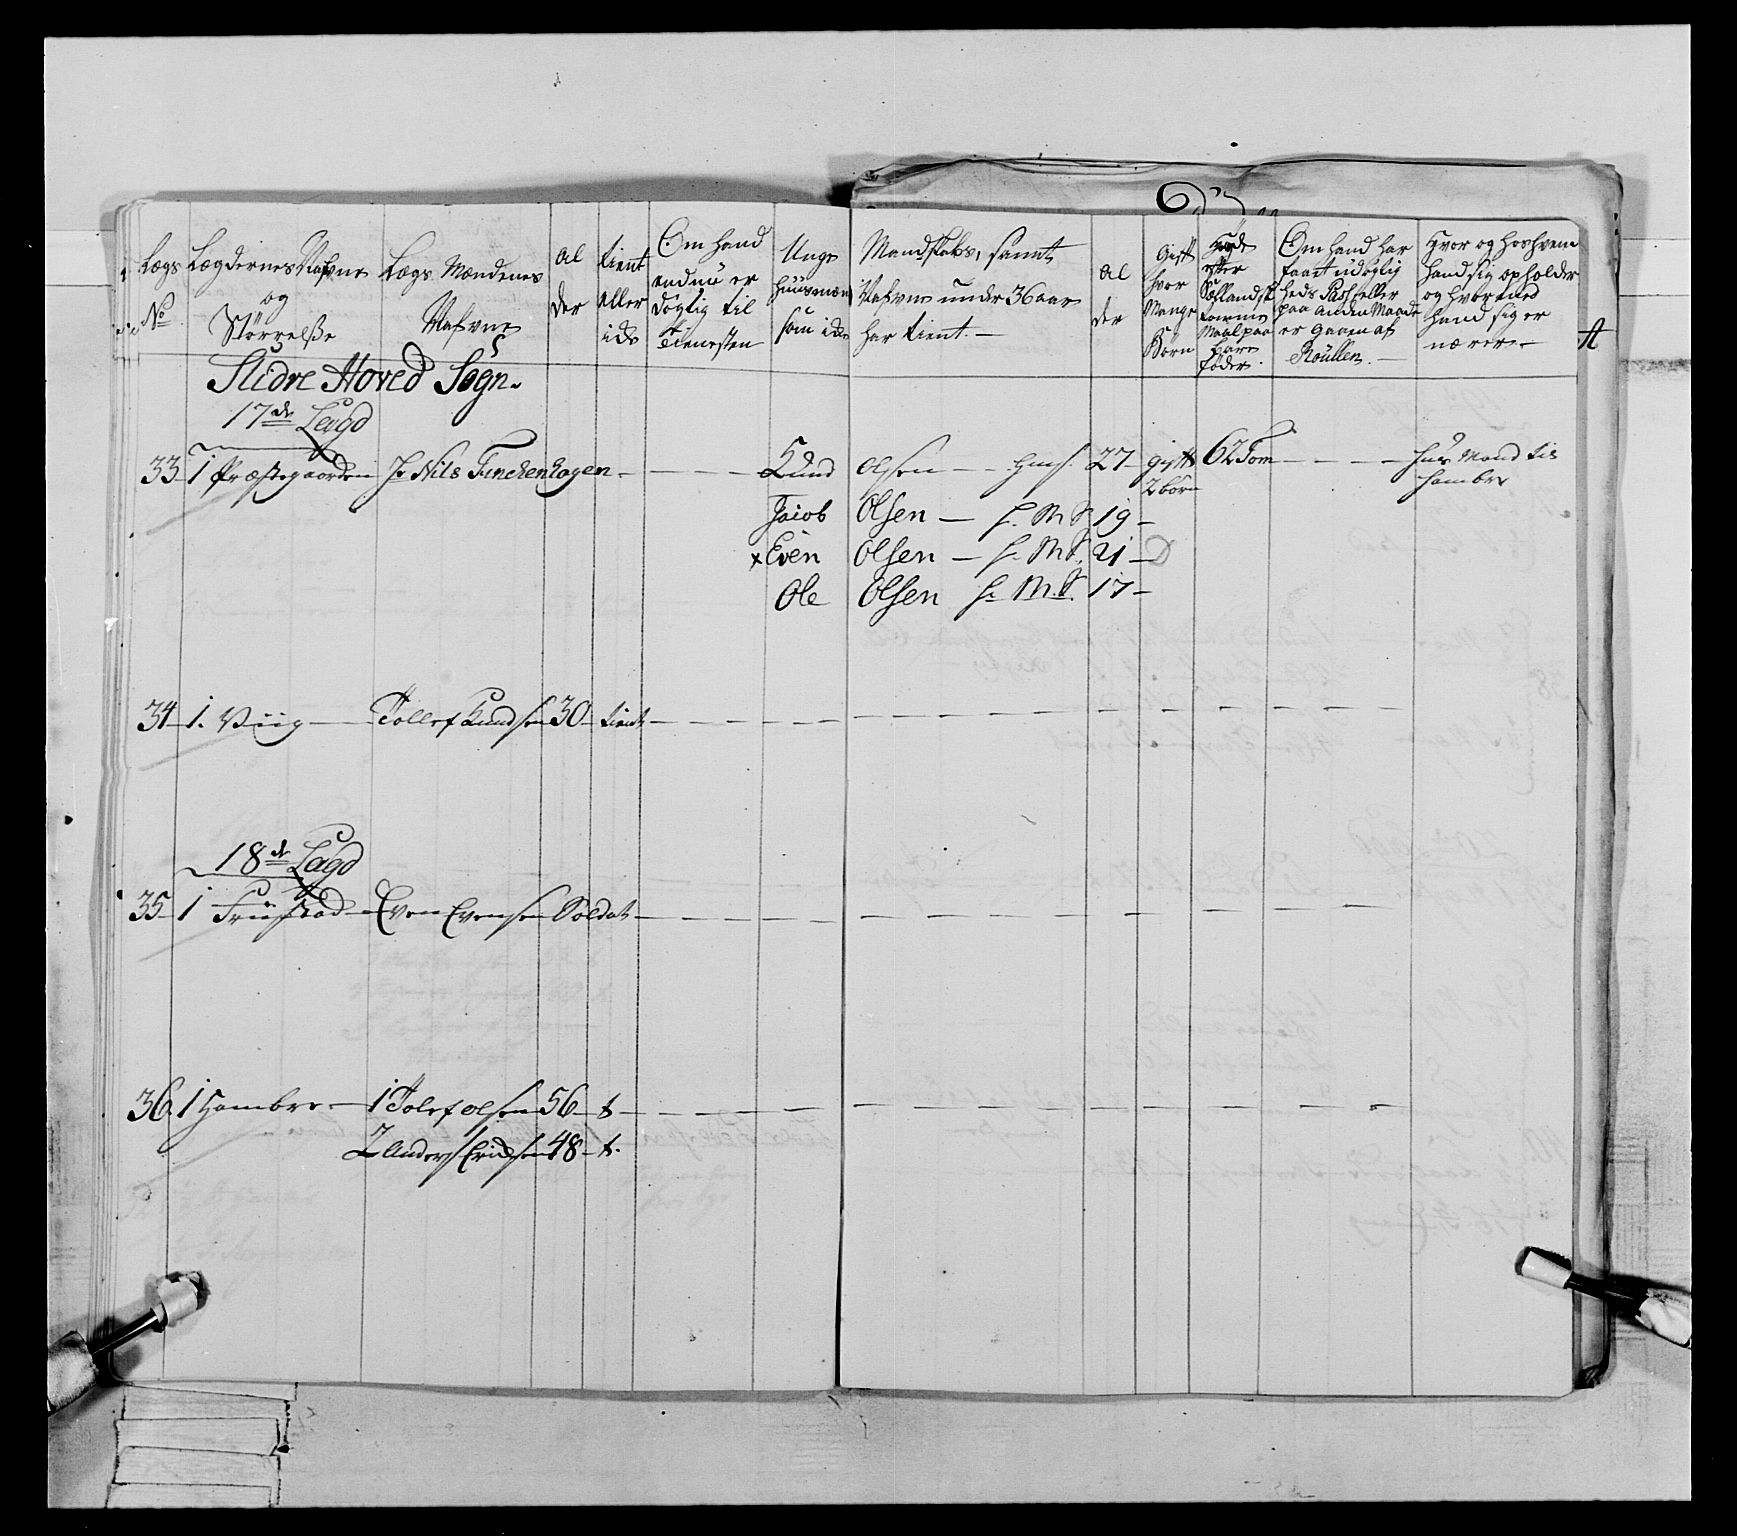 Lægs No
Lægdernes Nafvne og Størrelße
Lægs Mændenes Nafvne
Al der
tient eller ide
Om hand endnu er døgtig til Tienesten
Unge huusmænd som icke
Mandskabs, samt Nafvne under 36 aar har tient. —
Al der
Gift hvor Mange Børn
Høyde efter Sællandsk Maal paa bare føder
Om hand har faaet udøgtig heds Pass eller paa anden Maade er gaaen af Roullen. —
Hvor og hos hvem hand sig opholder og hvor med hand sig er nærer —
Slidre Hoved Sogn.
17de Lægd
33 1 Præstegaarden Hr Nils Finckenhagen — Knud Olsen — Hms. 27 — gift 2 børn 62 Tom — huus Mand til Hambre
Jacob Olsen — L. M. S 19 —
x Even Olsen — L. M S. 21 — D
Ole Olsen L. M. S. 17 —
34 1. Viig — Tollef Knudsen 30 — tient —
18de Lægd
35 1 Friistad — Even Evensen Soldat —
36 1 Hambre — 1 Tolef Olsen 56 — t —
2 Anders Ericksen 48 — t.